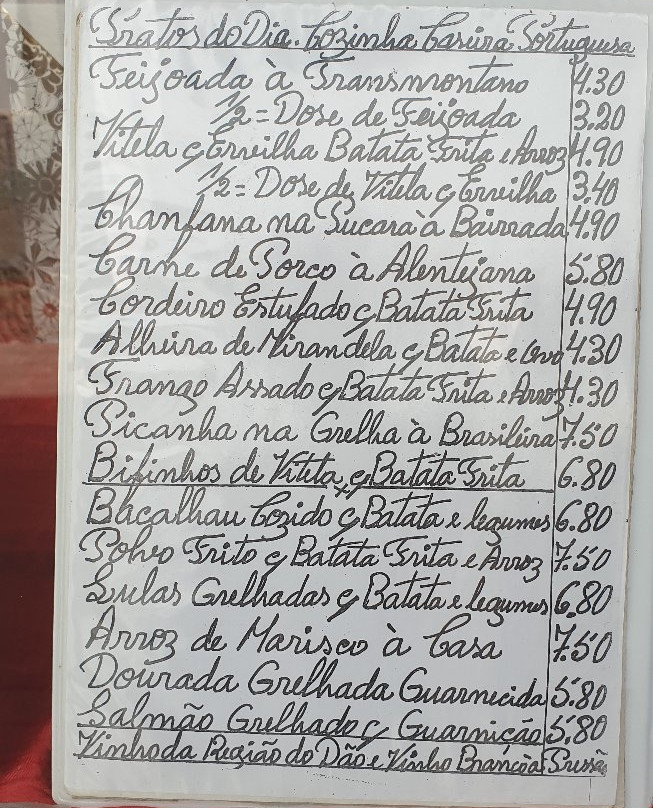 Pratos do Dia. Cozinha Caseira Portuguesa
Feijoada à Transmontano 4.30
1/2 = Dose de Feijoada 3.20
Vitela c/ Ervilha Batata Frita e Arroz 4.90
1/2 = Dose de Vitela c/ Ervilha 3.40
Chanfana na Pucara à Bairrada 4.90
Carne de Porco à Alentejana 5.80
Cordeiro Estufado c/ Batata Frita 4.90
Alheira de Mirandela c/ Batata e Ovo 4.30
Frango Assado c/ Batata Frita e Arroz 4.30
Picanha na Grelha à Brasileira 7.50
Bifinhos de Vitela c/ Batata Frita 6.80
Bacalhau Cozido c/ Batata e legumes 6.80
Polvo Frito c/ Batata Frita e Arroz 7.50
Lulas Grelhadas c/ Batata e legumes 6.80
Arroz de Marisco à Casa 7.50
Dourada Grelhada Guarnecida 5.80
Salmão Grelhado c/ Guarnição 5.80
Vinho da Região do Dão e Vinho Branco à Pressão